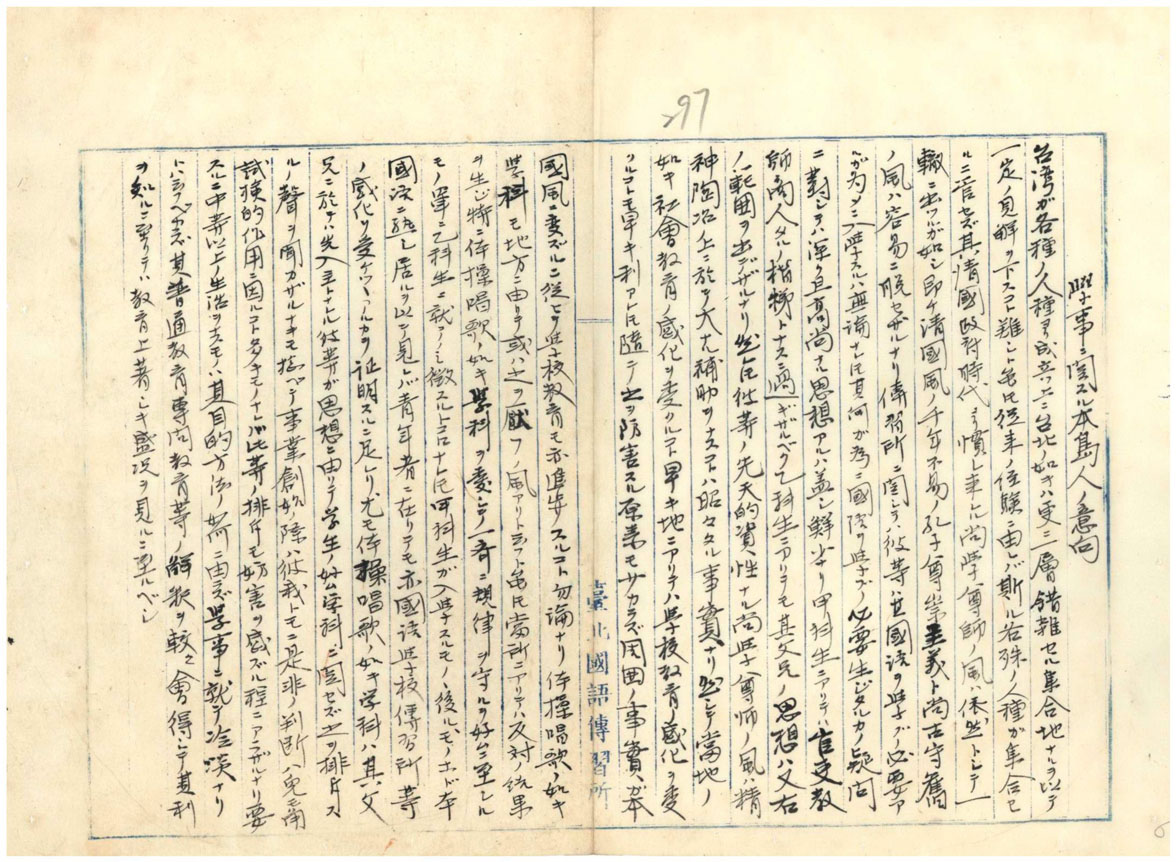 297
學事ニ関スル本島人ノ意向
台湾ガ各種ノ人種ヨリ成立シ、ニ台北ノ如キハ更ニ一層錯雑セル集合地ナルヲ以テ
一定ノ見解ヲ下スコト難シト虽氏従来ノ経験ニ由レバ斯ル若殊ノ人種ガ集合セ
ルニ管セズ其清國政府時代ヨリ慣レ来レル尚学尊師ノ風ハ依然トシテ一
轍ニ出ツルガ如シ即チ清國風ノ千年不易ノ孔子尊崇主義ト尚古守舊
ノ風ハ容易ニ脱セザルナリ傳習所ニ関シテ、彼等ハ其國語ヲ学ブ必要ア
ルガ為メニ入學スルハ無論ナレ氏其何ガ為ニ國語ヲ学ブノ必要生ジタルカノ疑問
ニ對シテハ深ク且高尚ナル思想アルハ蓋シ鮮少ナリ甲科生ニアリテハ官吏教
師商人タルノ楷梯トナスニ過ギザルベク乙科生ニアリテモ其父兄ノ思想ハ又右
ノ範囲ヲ出デザルナリ然レ氏彼等ノ先天的資性ナル尚学尊師ノ風ハ精
神陶冶上ニ於テ大ナル補助ヲナスコトハ昭々タル事實ナリ然シテ當地ノ
如キ社會教育ノ感化ヲ受クルコト早キ地ニアリテハ学校教育ノ感化ヲ受
クルコトモ早キ利アレ氏随テ之ヲ防害スル原素モ少カラズ周囲ノ事實ハガ本
臺北國語傳習所
國風ニ変ズルニ従ヒテ学校教育モ亦進歩スルコト勿論ナリ体操唱歌ノ如キ
学科モ地方ニ由リテ或ハ之ヲ厭フノ風アリト云フト虽氏當所ニアリテハ反対結果
ヲ生ジ特ニ体操唱歌ノ如キ學科ヲ愛シテ一斉ニ規律ヲ守ルヲ好ムニ至レル
モノ單ニ乙科生ニ就テノミ徴スルトコロナレ氏甲科生ガ入学スルモノ、後ルモノホド本
國語ニ熟シ居ルヲ以テ見レバ青年者ニ在リテモ亦國語学校傳習所等
ノ感化ヲ受ケツツアルカヲ証明スルニ足レリ尤モ体操唱歌ノ如キ学科ハ其父
兄ニ於テハ先入主トナレル彼等ガ思想ニ由リテ学生ノ好ム学科ニ関セズ之ヲ排斥ス
ルノ聲ヲ聞カザルナキモ捴ベテ事業創始ノ際ハ彼我トモニ是非ノ判断ハ免モ角
試換的作用ニ因ルコト多キモノナレバ此等ノ排斥モ妨害ヲ感ズル程ニアラザルナリ要
スルニ中等以上ノ生活ヲナスモノハ其目的方法ノ如何ニ由ラズ學事ニ就テ冷淡ナリ
トハ云フベカラズ其普通教育専門教育等ノ解釈ヲ較々會得シテ其利
ヲ知ルニ到リテハ教育上著シキ盛況ヲ見ルニ至ルベシ